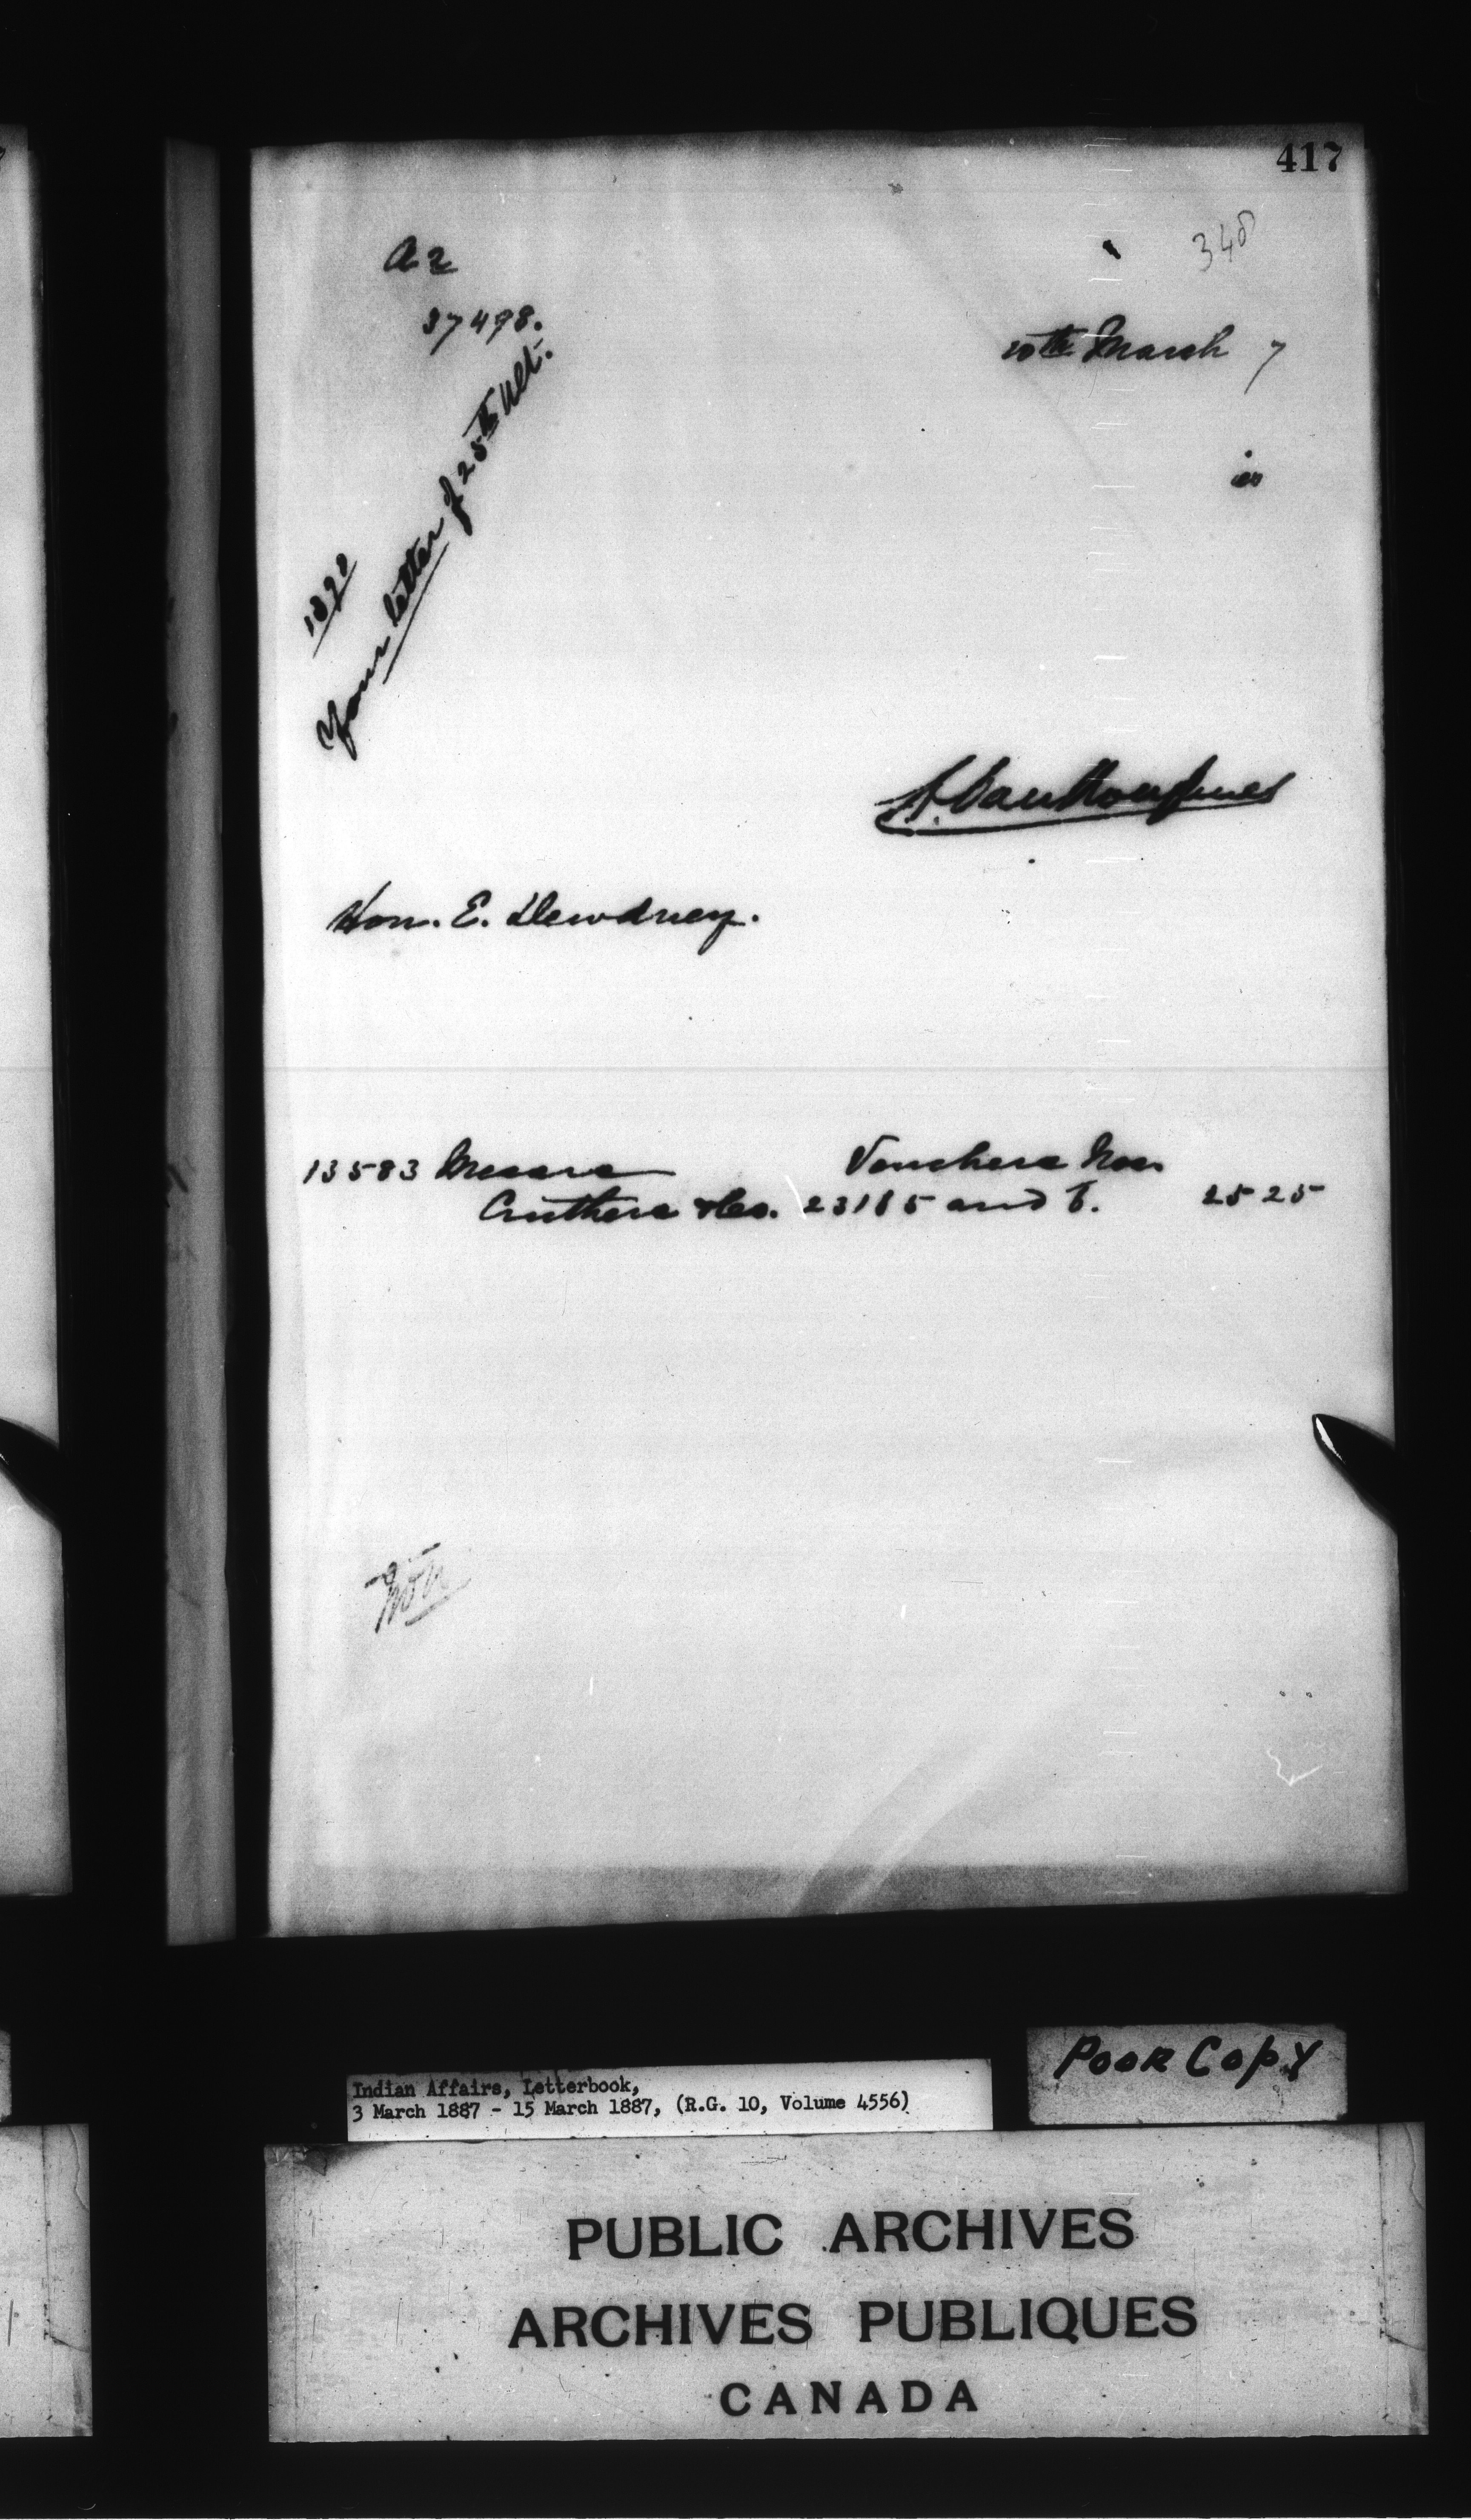 417
348
A 2
37498.
10th March 7
is
1890
Your letter of 25th Ult.
Hon. E. Dewdney.
13583 Messrs Vouchers Nos
Cruthers & Co. 23185 and 6. 25 25
Indian Affairs, Letterbook,
3 March 1887 - 15 March 1887, (R.G. 10, Volume 4556)
POOR COPY
PUBLIC ARCHIVES
ARCHIVES PUBLIQUES
CANADA